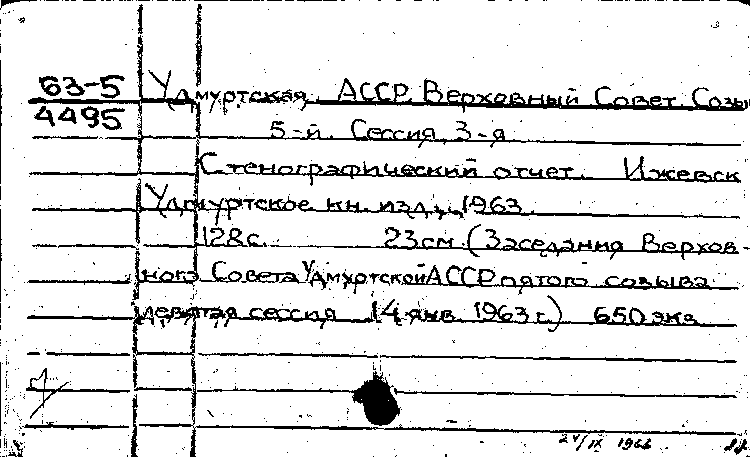 63-5
4495
Удмуртская. АССР. Верховный Совет. Созы
5-й. Сессия, 3-я
Стенографический отчет. Ижевск
Удмуртское кн. изд., 1963.
128с. 23см. (Заседания Верхов-
ного Совета Удмуртской АССР пятого созыва
девятая сессия 14 янв. 1963 г.) 650 экз
24/IX 1966